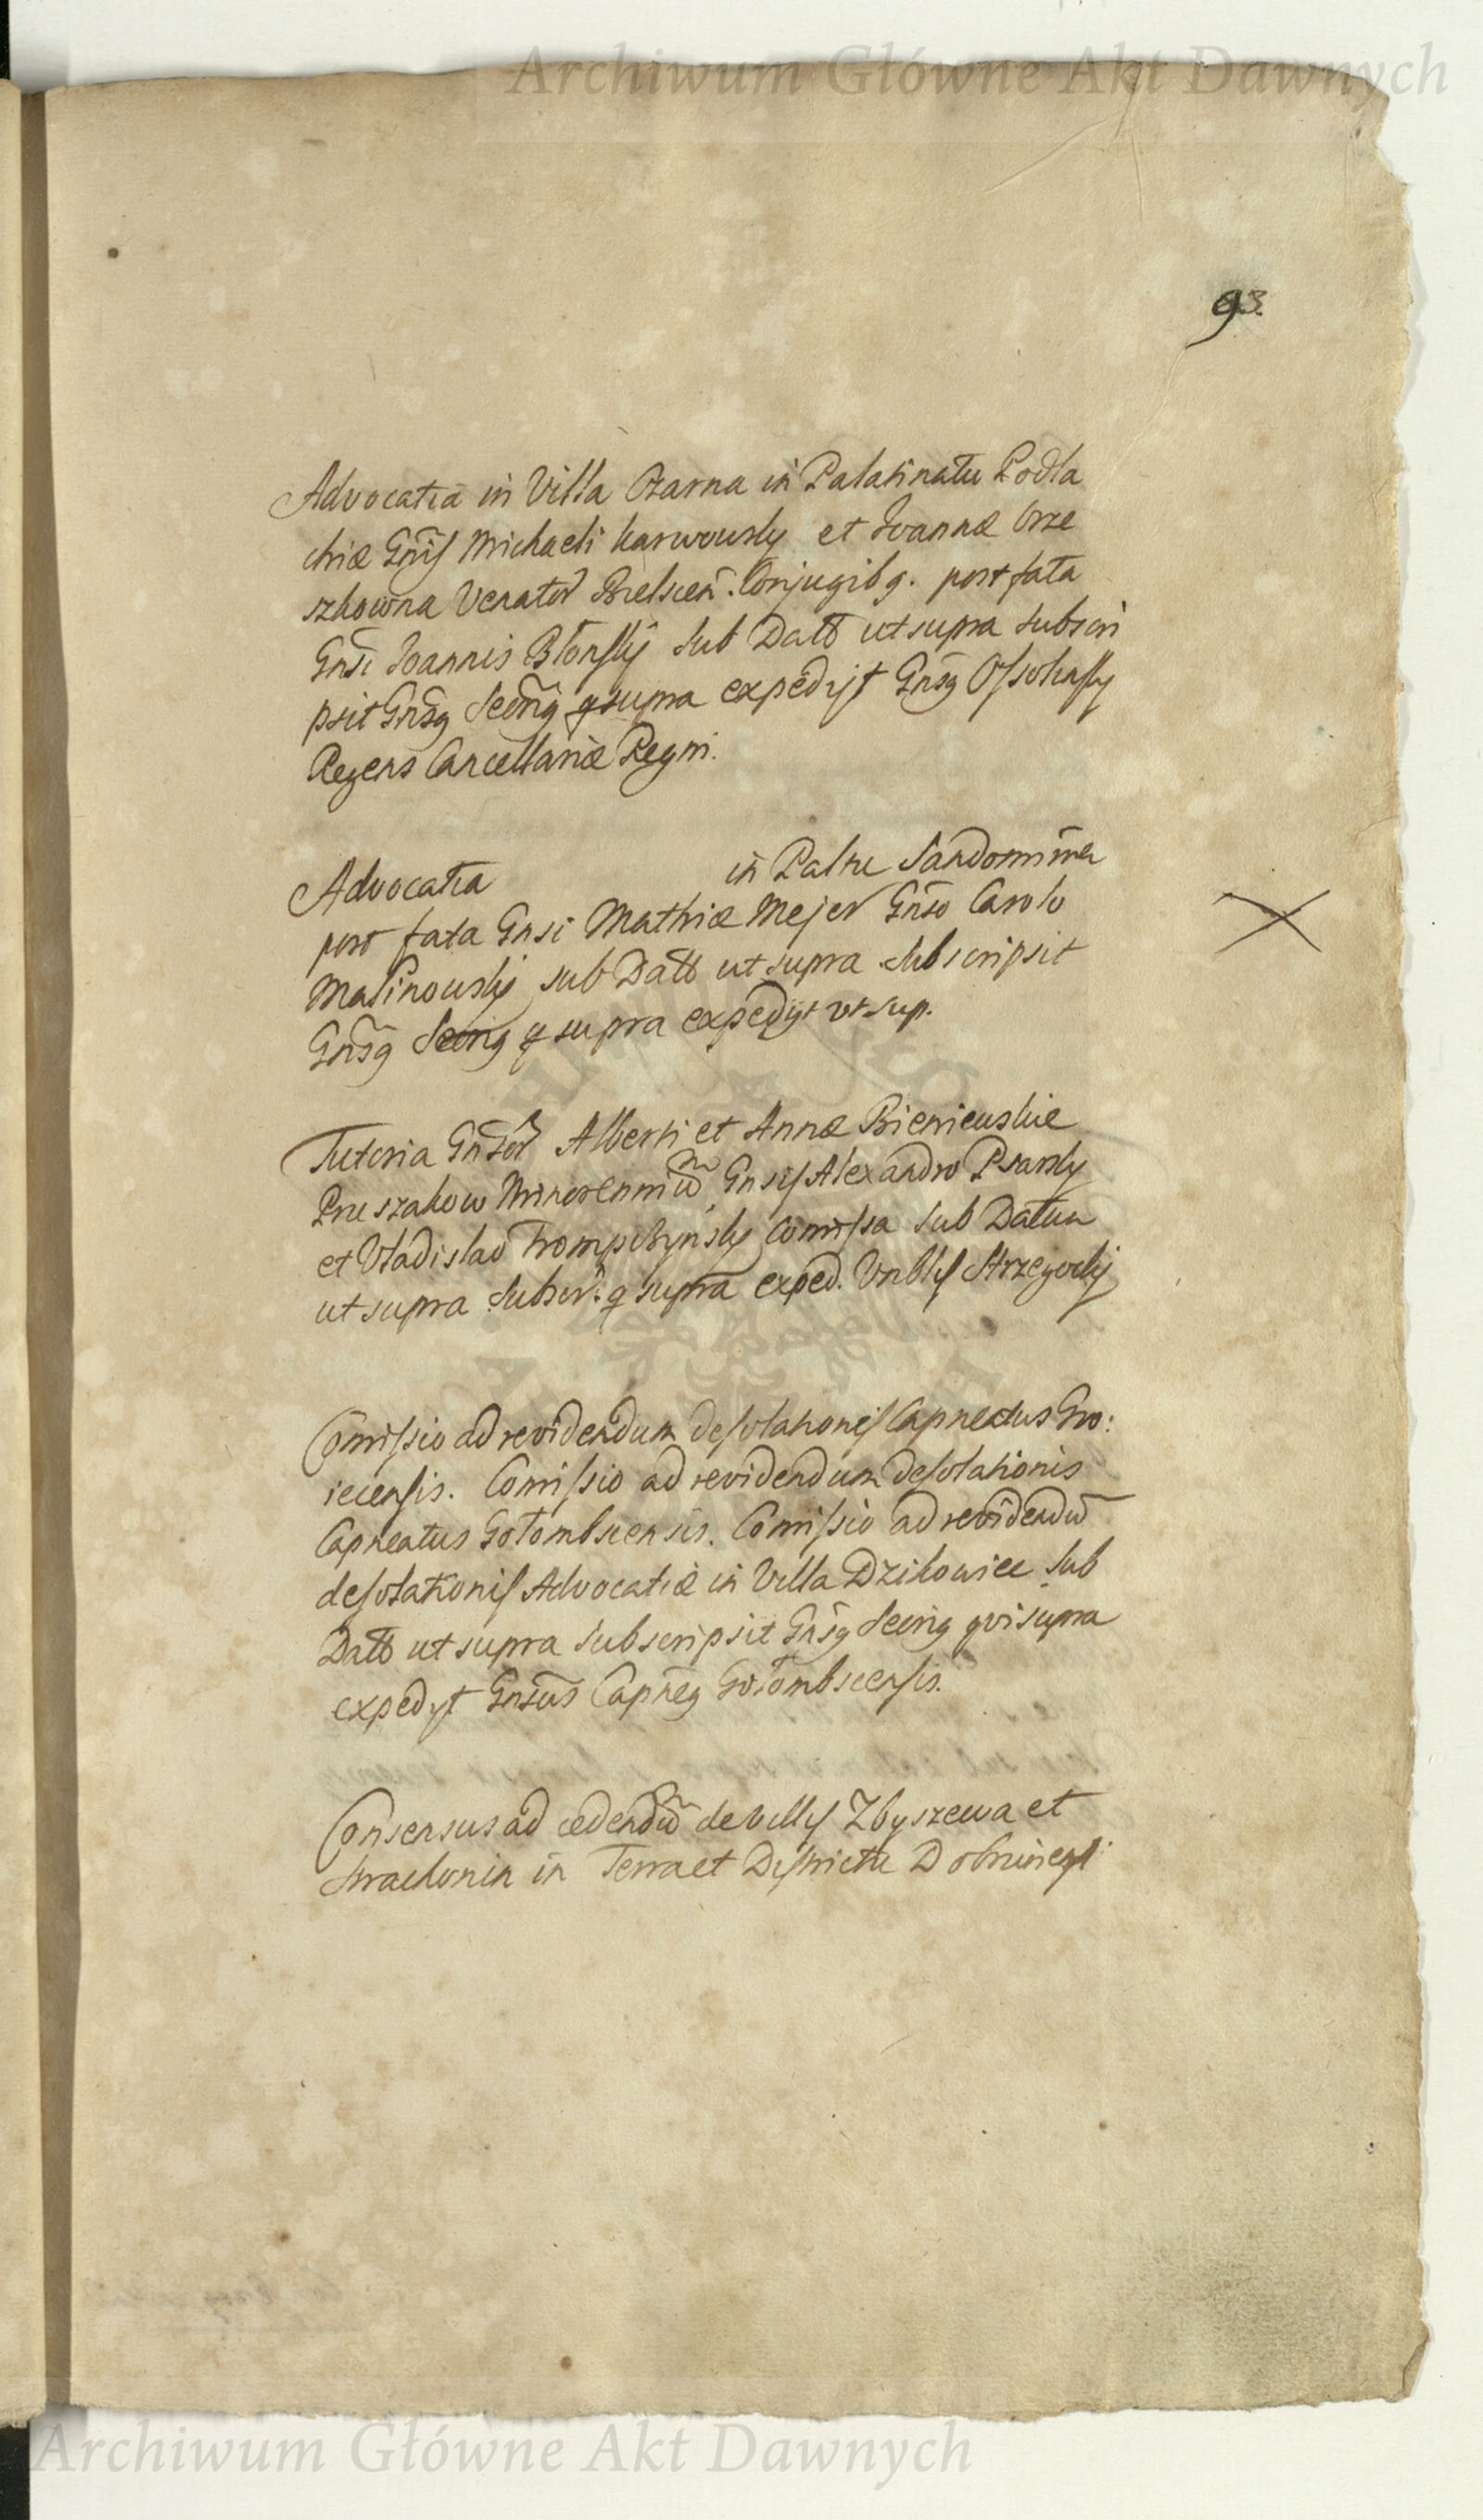 Archiwum Główne Akt Dawnych
93.
Advocatia in Villa Czarna in Palatinatu Podla
chiæ Gnīs Michaeli Karwowsky et Joannæ Orze
szkowna Venator Bielscen. Conjugibq. post fata
Gnsi Joannis Błonsky sub Datt ut supra subscri
psit Gnsq Secrīq q supra expedijt Gnsq Ossolinsky
Regens Cancellariæ Regni.
Advocatia in Paltu Sandomirien
post fata Gnsi Mathiæ Mejer Gnso Carolo
Malinowsky sub Datt ut supra subscripsit
Gnsq Secriq q supra expedijt ut sup.
Tutoria Gnsor Alberti et Annæ Bieniewskie
Pruszakow Minorenniū Gnsis Alexandro Psarsky
et Vladislao Trompczynsky Comissa sub Datum
ut supra subscr. q supra exped. Vrblis Strzegocky
Comissio ad revidendum desolationis Capneatus Gro:
iecensis. Comissio ad revidendum desolationis
Capneatus Gołombscensis. Comissio ad revidendū
desolationis Advocatiæ in Villa Dzikowiec sub
Datt ut supra subscripsit Gnsq Secriq qui supra
expedijt Gnsus Capneq Gołombscensis.
Consensus ad cedendū de Villis Zbyszewa et
Strachonin in Terra et Districtu Dobrinensi
Archiwum Główne Akt Dawnych